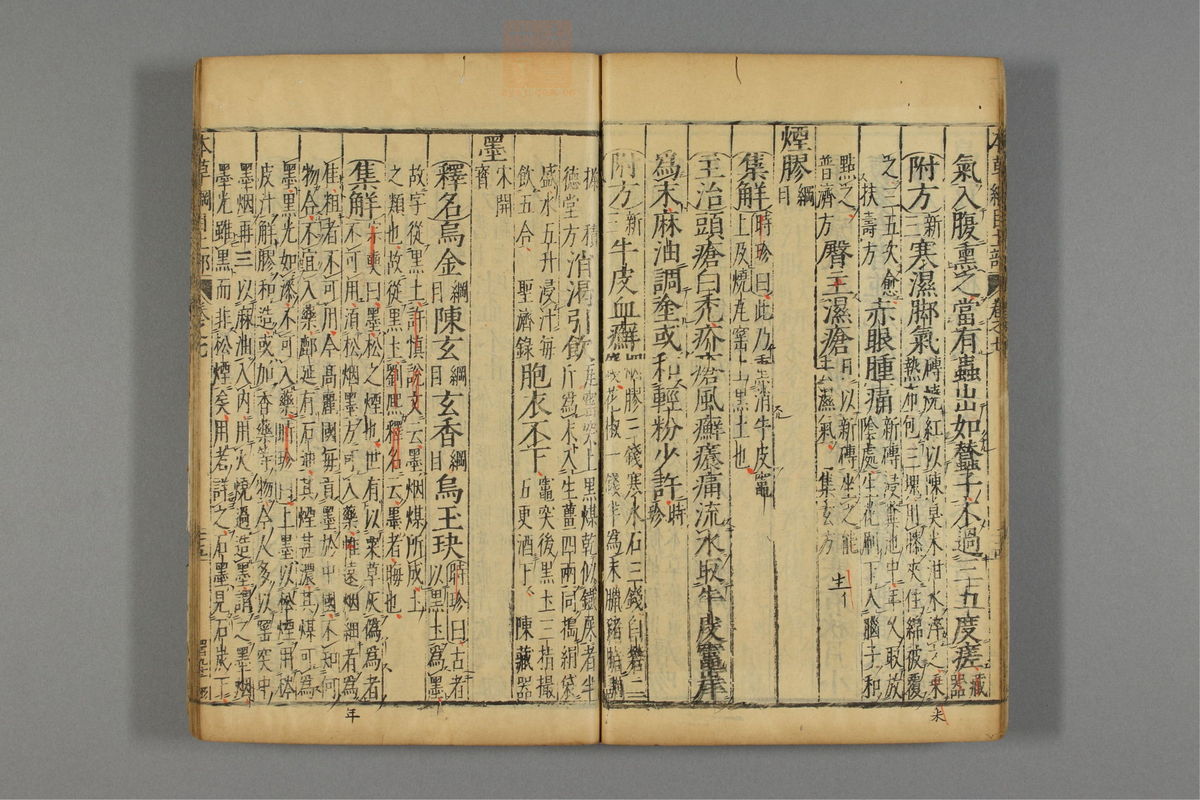 氣入腹熏之當有蟲出如蠶子不過三五度瘥藏器
附方新三寒濕脚氣磚燒紅以陳臭米泔水淬之乗
熱布包三塊用膝夾住綿被覆
之三五次愈
扶壽方赤眼腫痛新磚浸糞池中年久取放
陰處生花刷下入腦子和
點之
普濟方臀生濕瘡日以新磚坐之能
去濕氣集玄方
煙膠綱目
集解時珍曰此乃熏消牛皮竈
上及燒瓦窰上黑土也
主治頭瘡白禿疥瘡風癬癢痛流水取牛皮竈岸
為末麻油調塗或和輕粉少許時珍
附方新三牛皮血癬煙膠三錢寒水石三錢白礬二
錢花椒一錢半為末臘猪脂調
搽積
德堂方消渴引飲瓦窰突上黑煤乾似鐵屎者半
斤為末入生薑四兩同搗絹袋
盛水五升浸汁每
飲五合聖濟錄胞衣不下竈突後黑土三指撮
五更酒下陳藏器
墨宋開寶
釋名烏金綱目陳玄綱目玄香綱目烏玉玦時珍曰古者
以黑土為墨
故字從黑土許慎說文云墨烟煤所成土
之類也故從黑土劉熙釋名云墨者晦也
集解宗奭曰墨松之煙也世有以粟草灰偽為者
不可用須松烟墨方可入藥惟遠烟細者為
佳粗者不可用今高麗國每貢墨於中國不知何
物合不宜入藥鄜延有石油其煙甚濃其煤可為
墨黑光如漆不可入藥時珍曰上墨以松煙用梣
皮汁解膠和造或加香藥等物今人多以窰突中
墨烟再三以麻油入內用火燒過造墨謂之墨烟
墨光雖黑而非松煙矣用者詳之石墨見石炭下